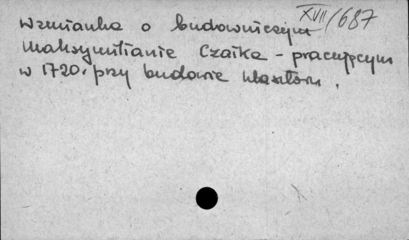 XVII/687
Wzmianka o budowniczym
Maksymilianie Czaika - pracującym
w 1720. przy budowie klasztoru.